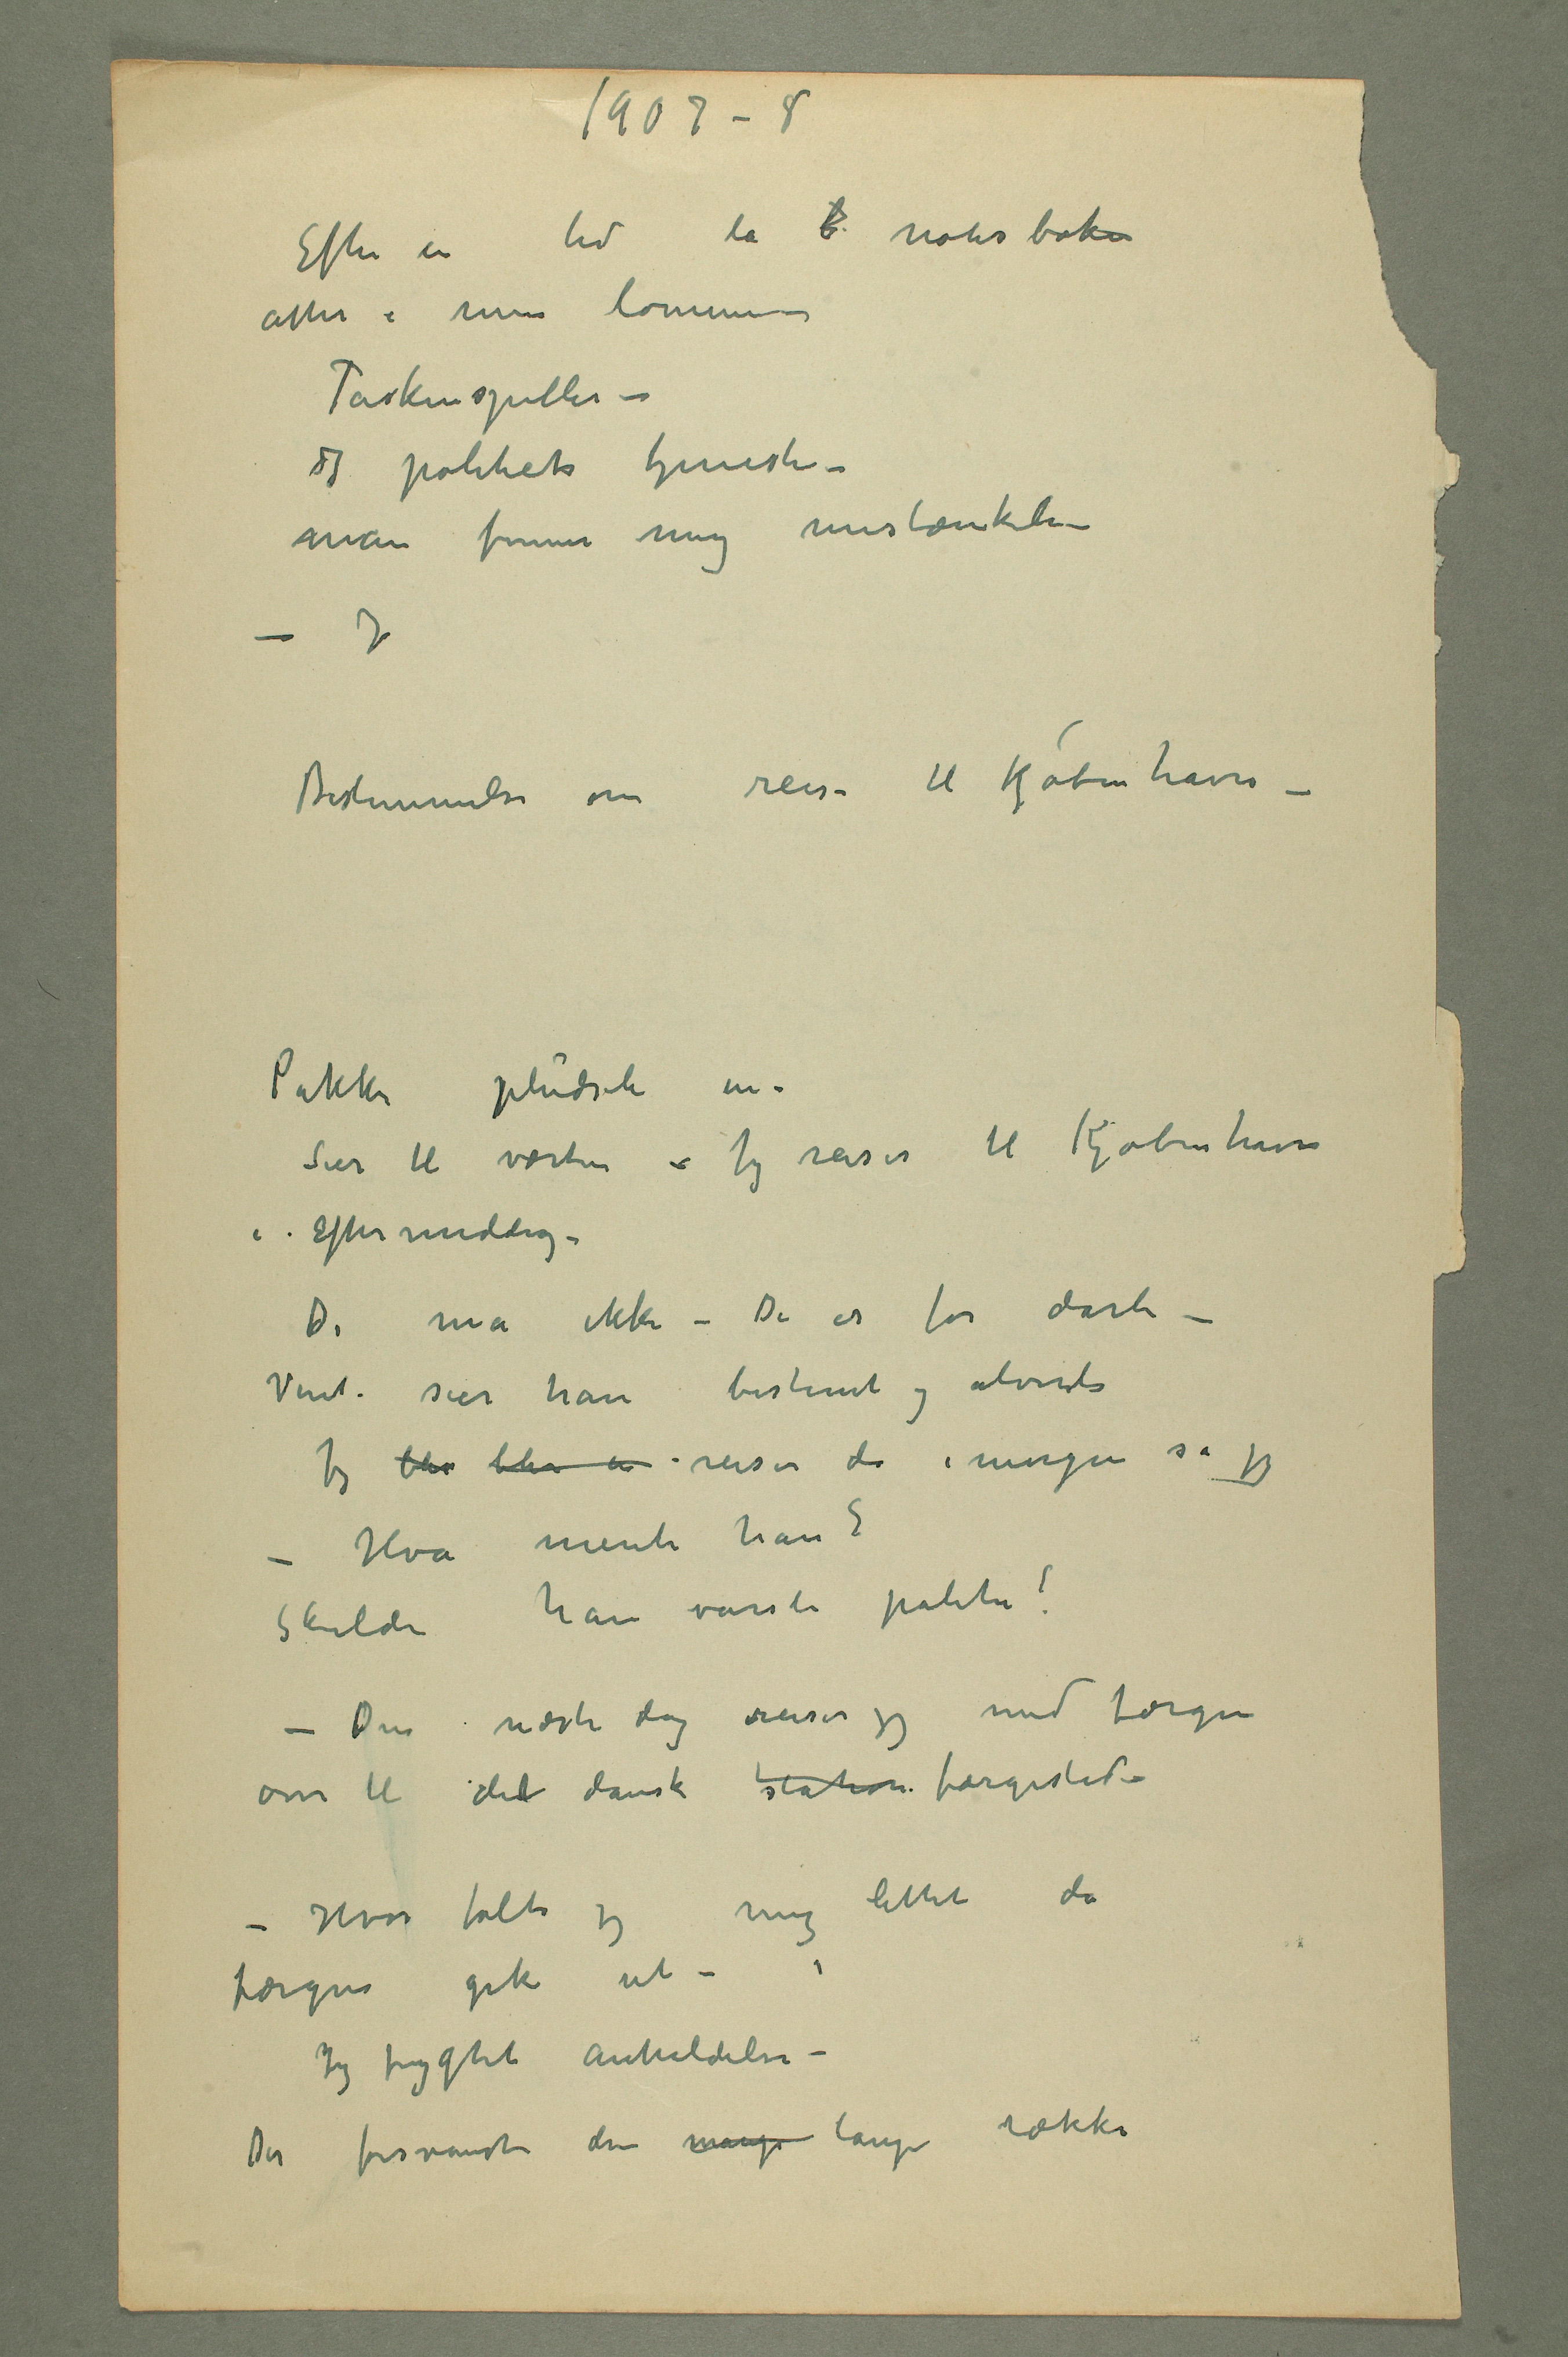 1907-8
Efter en tid la b. notisboken
atter i min lomme –
Taskenspiller –
og politiets tjeneste –
man finner mig mistænkelig –
– J
Bestemmelse om reise til Kjøbenhavn –
Pakker pludseli in –
Sier til værten – Jeg reiser til Kjøbenhavn
i Eftermiddag –
De må ikke – De er for dårli –
Vent – sier han bestemt og alvorli
Jeg blir blir en reiser da imorgen sa jeg
– Hva mente han?
Skulde han varsle politi!
– Den næste dag reiser jeg med færgen
over til det dansk station færgested –
– Hvor følte jeg mig lettet da
færgen gik ut –
Jeg frygtet anholdelse –
Der forsvandt den mange lange række